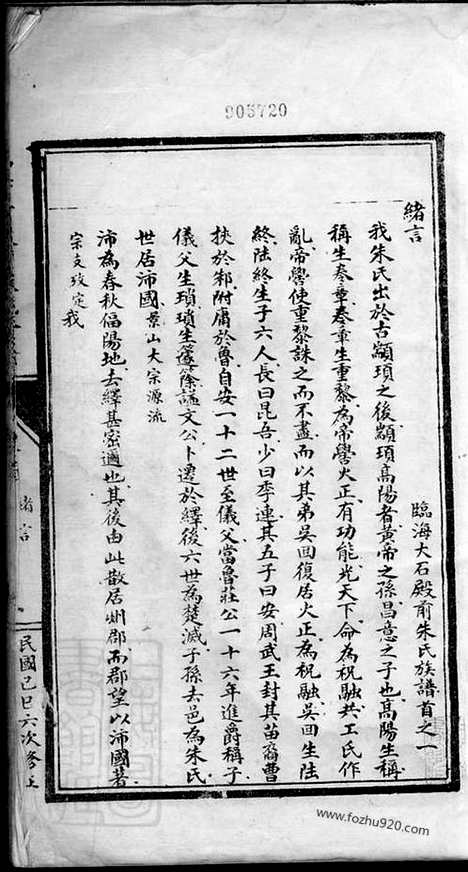 905720
緒言
臨海大石殿前朱氏族譜首之一
我朱氏出於古顓頊之後顓頊高陽者黃帝之孫昌意之子也高陽生稱
稱生奏章奏章生重黎為帝嚳火正有功能光天下命為祝融共工氏作
亂帝嚳使重黎誅之而不盡而以其弟吳囬復居火正為祝融吳囬生陸
終陸終生子六人長曰昆吾少曰季連其五子曰安周武王封其苗裔曹
挾於邾附庸於魯自安一十二世至儀父當魯莊公一十六年進爵稱子
儀父生瑣瑣生籧篨謚文公卜遷於繹後六世為楚滅子孫去邑為朱氏
世居沛國景山大宗源流
沛為春秋偪陽地去繹甚密邇也其後由此散居州郡而郡望以沛國著
宗支攷定我
緒言
民國己巳六次修正
www.fozhu920.com